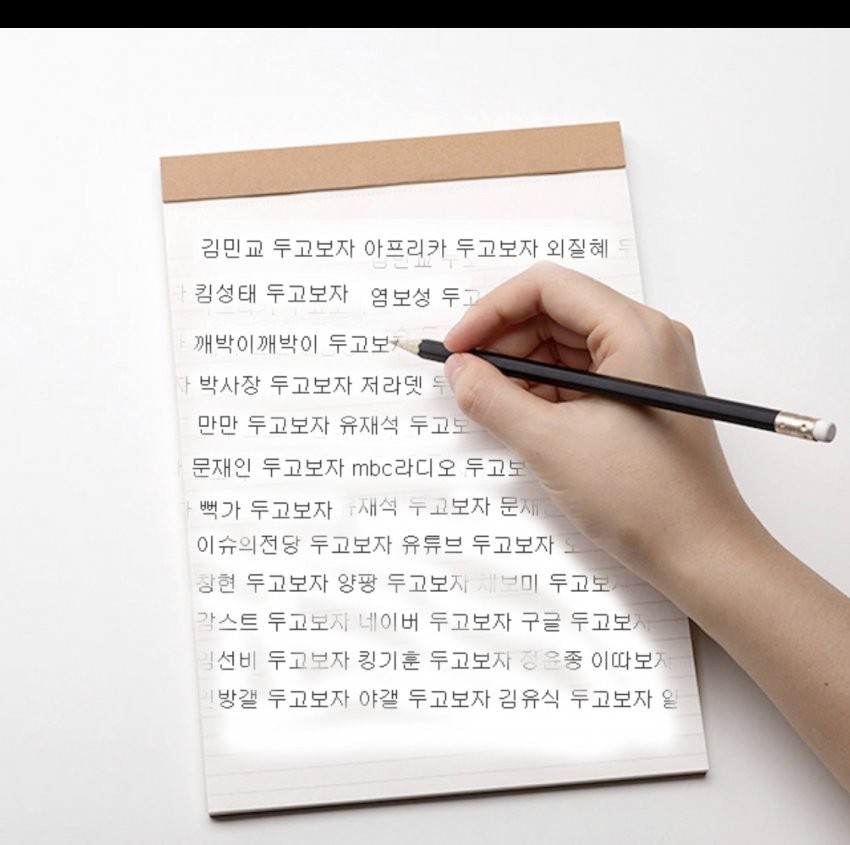 김민교 두고보자 아프리카 두고보자 외질혜
킴성태 두고보자 염보성 두고
깨박이깨박이 두고보자
박사장 두고보자 저라뎃
만만 두고보자 유재석 두고보
문재인 두고보자 mbc라디오 두고보
뻑가 두고보자 유재석 두고보자 문재인
이슈의전당 두고보자 유튜브 두고보자
창현 두고보자 양팡 두고보자 채보미 두고보자
감스트 두고보자 네이버 두고보자 구글 두고보자
임선비 두고보자 킹기훈 두고보자 정윤종 이따보자
방갤 두고보자 야갤 두고보자 김유식 두고보자